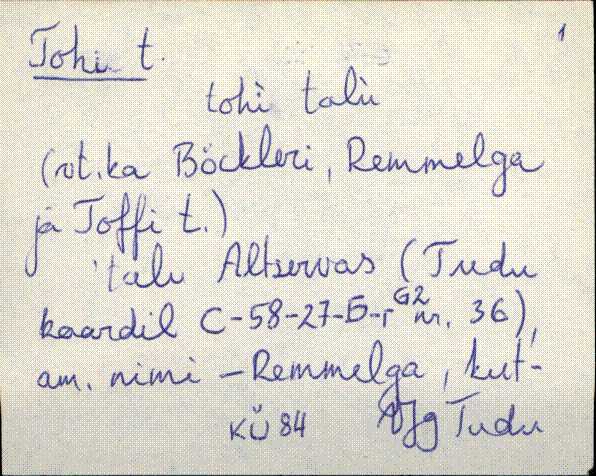 1
Tohi t.
tohi talu
(vt.ka Böckleri, Remmelga
ja Toffi t.)
talu Altservas (Tudu
kaardil C-58-27-Б-г G2 nr. 36),
am. nimi – Remmelga, kut-
KÜ 84 VJg Tudu